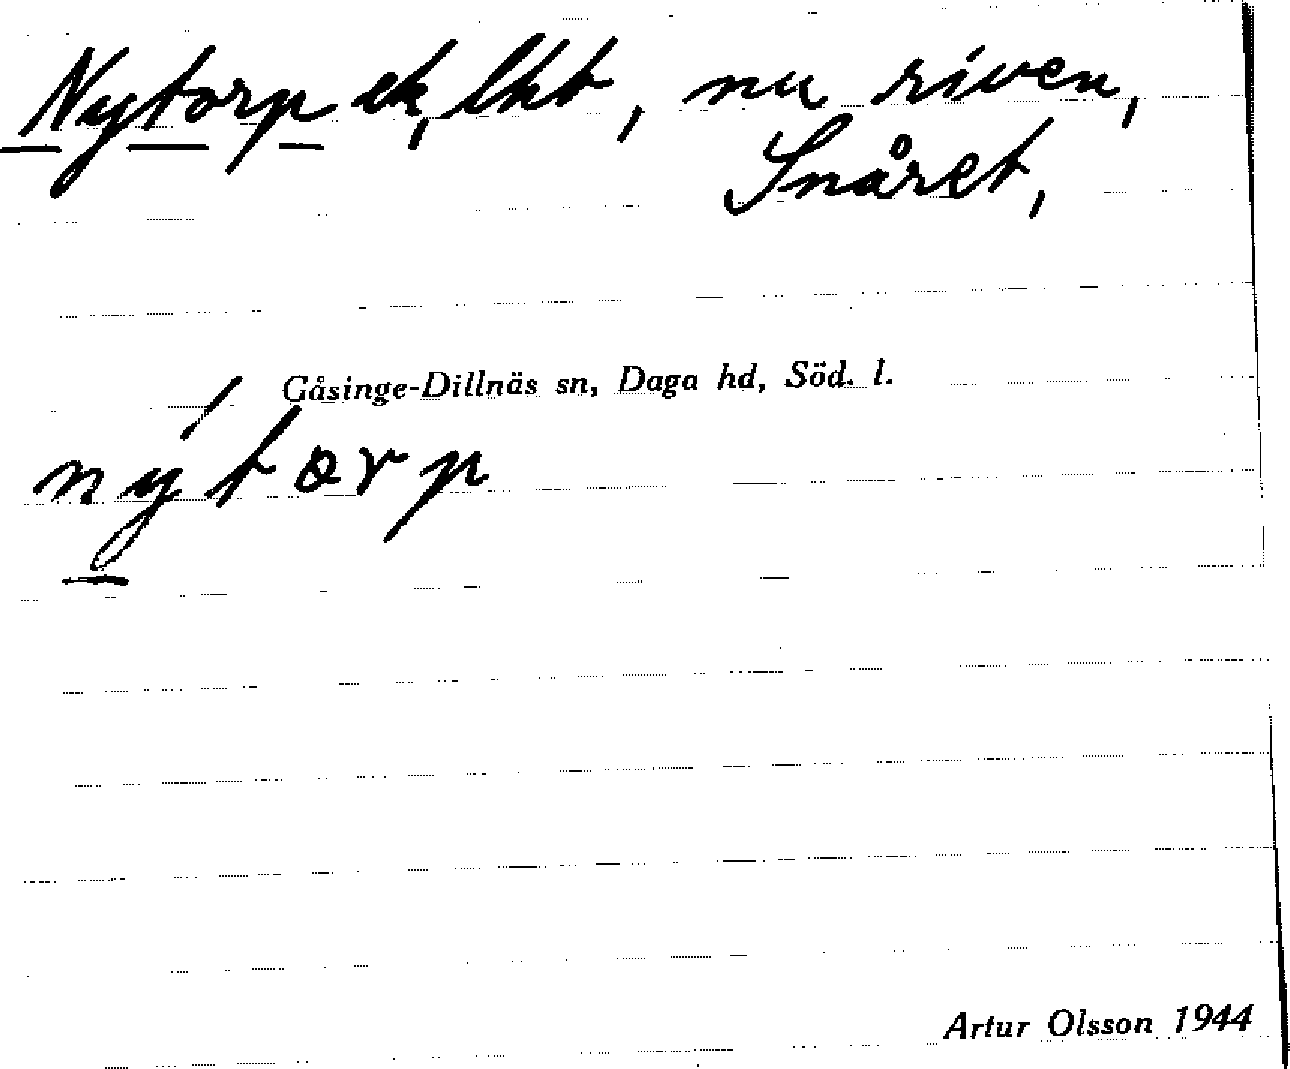 Nytorp ek, lht, nu riven,
Snåret,
Gåsinge-Dillnäs sn, Daga hd, Söd. l.
nýtorp
Artur Olsson 1944